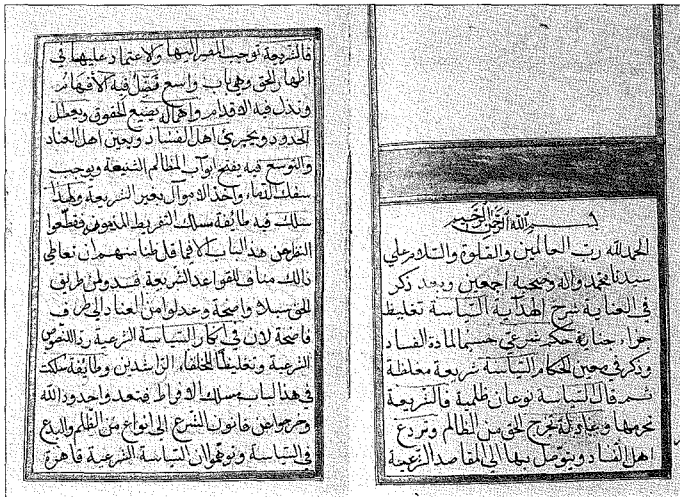 بسم الله الرحمن الرحيم
الحمد لله رب العالمين والصلوة والسلام علي
سيدنا محمد واله وصحبه اجمعين وبعد ذكر
في العناية شرح الهداية السياسة تغليظ
جزاء جناية حكم شرعي حسما لمادة الفساد
وذكر في معين الحكام السياسة شريعة مغلظة
ثم قال السياسة نوعان ظلمية فالشريعة
تحرمها وعادلة تخرج الحق من الظالم وتردع
اهل الفساد ويتوصل بها الي المقاصد الشرعية
فالشريعة توجب المصير اليها والاعتماد عليها في
اظهار الحق وهي باب واسع تضل فيه الافهام
وتذل فيه الاقدام واهماله يضيع الحقوق ويعطل
الحدود ويجري اهل الفساد ويعين اهل العناد
والتوسع فيه يفتح ابواب المظالم الشنيعة ويوجب
سفك الدماء واخذ الاموال بغير الشريعة ولهذا
سلك فيه طائفة مسلك التفريط المذموم فقطعوا
النظر عن هذا الباب الا فيما قل ظنا منهم ان تعاطي
ذلك مناف للقواعد الشرعية فسدوا من طريق
الحق سبيلا واضحة وعدلوا من العناد الي طرف
فاضحة لان في انكار السياسة الشرعية رد النصوص
الشرعية وتغليظا للخلفاء الراشدين وطائفة سلكت
في هذا الباب مسلك الافراط فتعدوا حدود الله
وخرجوا عن قانون الشرع الي انواع من الظلم والبدع
في السياسة وتوهموا ان السياسة الشرعية قاصرة